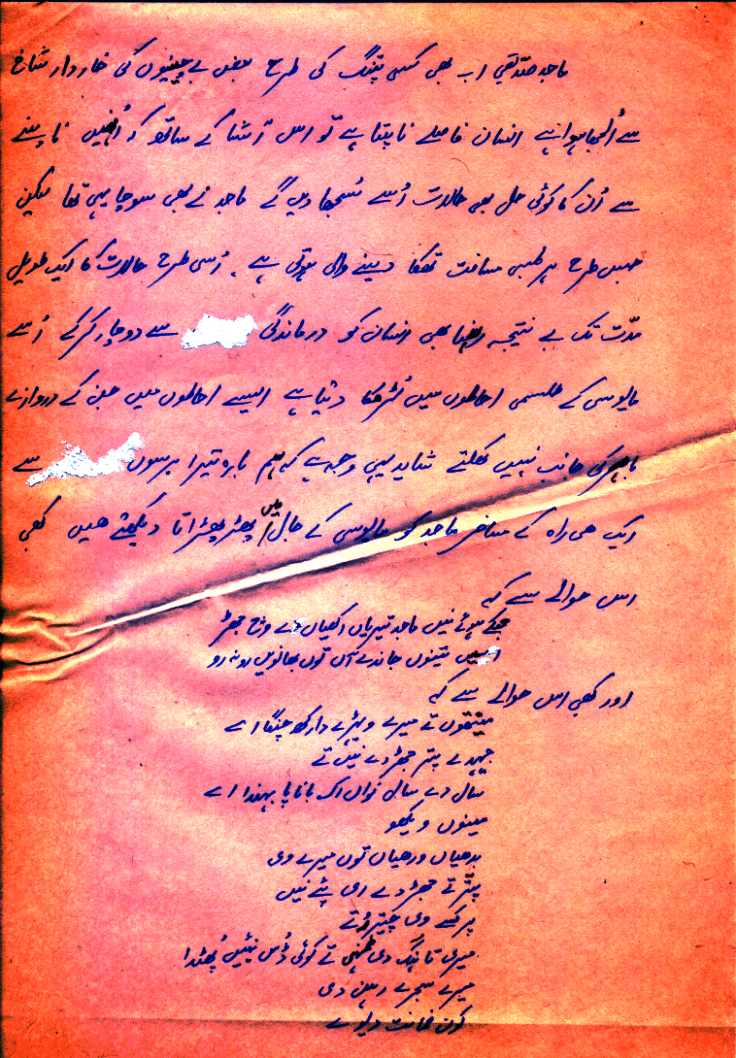 ماجد صدیقی اب بھی کسی پتنگ کی طرح بعض بے چینیوں کی خاردار شاخ
سے اُلجھا ہوا ہے انسان فاصلے ناپتا ہے تو اس آشا کے ساتھ کہ اُنہیں ناپنے
سے اُن کا کوئی حل بھی حالات اُسے سُجھا دیں گے ماجد نے بھی سوچا یہی تھا لیکن
جس طرح ہر لمبی مسافت تھکا دینے والی ہوتی ہے۔ اُسی طرح حالات کا ایک طویل
مدّت تک بے نتیجہ رہنا بھی انسان کو درماندگی سے دوچار کر کے اُسے
مایوسی کے طلسمی احاطوں میں لڑھکا دیتا ہے ایسے احاطوں میں جن کے دروازے
باہر کی جانب نہیں کھلتے شاید یہی وجہ ہے کہ ہم بارہ تیرا برسوں سے
ایک ھی راہ کے مسافر ماجد کو مایوسی کے جال میں پھڑپھڑاتا دیکھتے ھیں کبھی
اس حوالے سے کہ
چھپے ہوئے نیں ماجد تیریاں اکھیاں دے وچ جھڑ
اسیں تینوں جاندے آں توں بھانویں رو نہ رو
اور کبھی اس حوالے سے کہ
میتھوں تے میرے ویہڑے دا رکھ چنگا اے
جیہدے پتر جھڑدے نیں تے
سال دے سال نواں اک بانا پا بہندا اے
مینوں ویکھو
ورھیاں ورھیاں توں میرے وی
پتر تے جھڑدے ای پئے نیں
پر کسے وی چیتر رُتے
میری تانگ دی ٹہنی تے کوئی ڈُس نئیں پُھٹدا
میرے سجرے رھن دی
کون ضمانت دیوے